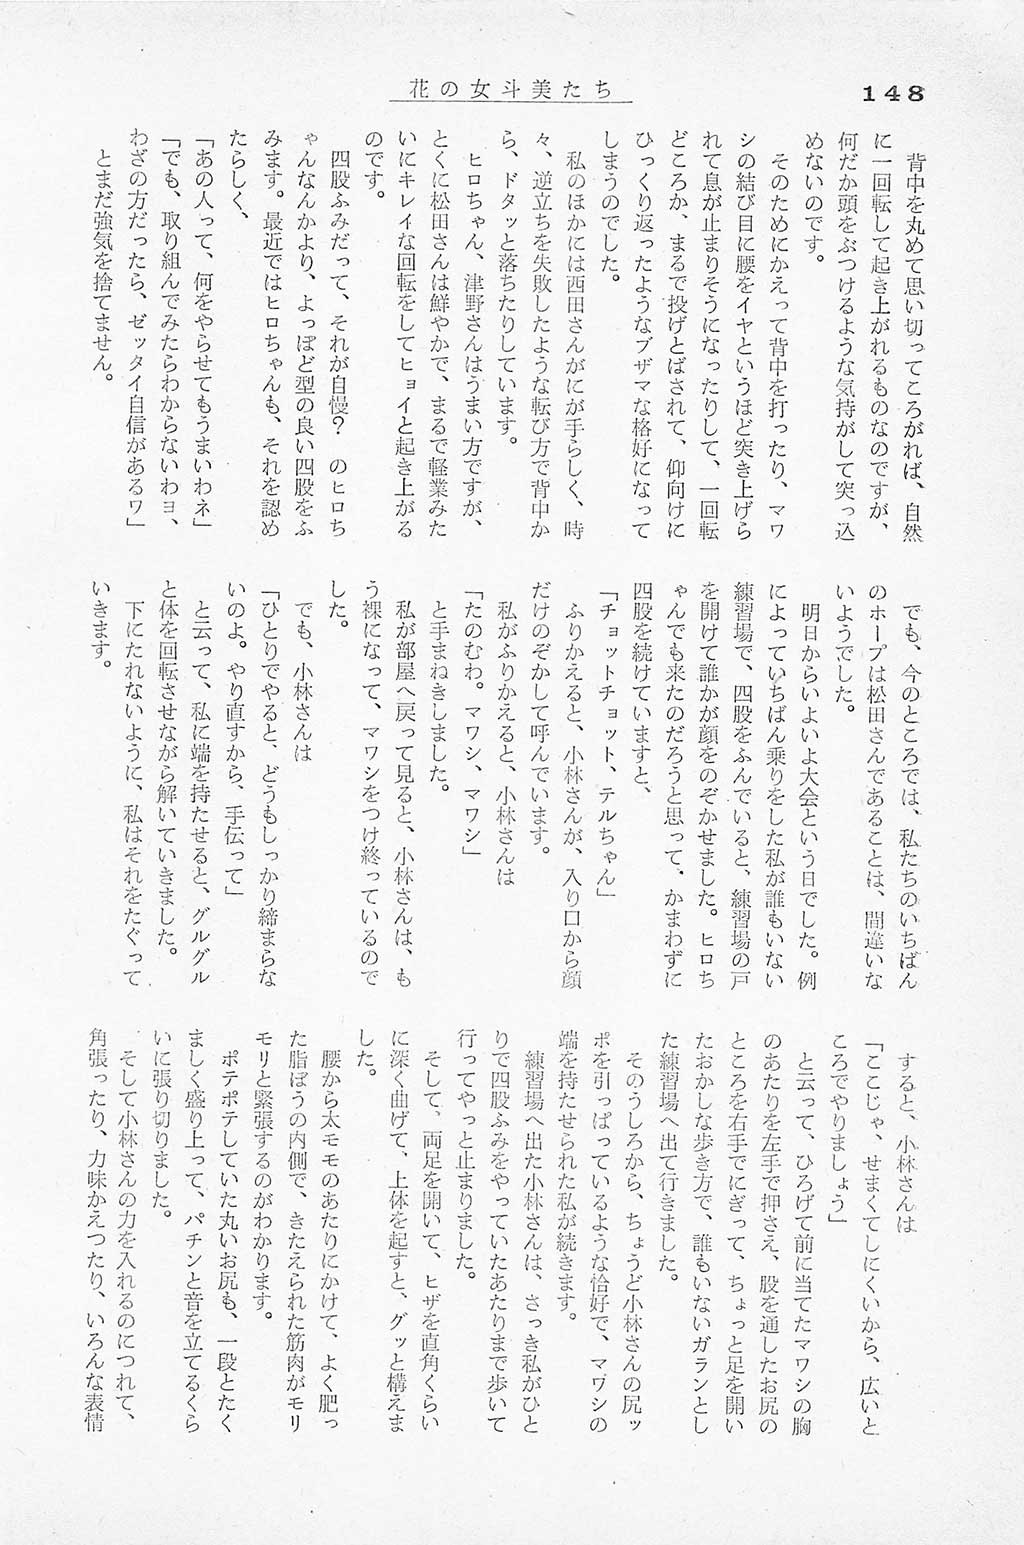 148
花の女斗美たち
背中を丸めて思い切ってころがれば、自然
に一回転して起き上がれるものなのですが、
何だか頭をぶつけるような気持がして突っ込
めないのです。
そのためにかえって背中を打ったり、マワ
シの結び目に腰をイヤというほど突き上げら
れて息が止まりそうになったりして、一回転
どころか、まるで投げとばされて、仰向けに
ひっくり返ったようなブザマな格好になって
しまうのでした。
私のほかには西田さんがにが手らしく、時
々、逆立ちを失敗したような転び方で背中か
ら、ドタッと落ちたりしています。
ヒロちゃん、津野さんはうまい方ですが、
とくに松田さんは鮮やかで、まるで軽業みた
いにキレイな回転をしてヒョイと起き上がる
のです。
四股ふみだって、それが自慢？　のヒロち
ゃんなんかより、よっぽど型の良い四股をふ
みます。最近ではヒロちゃんも、それを認め
たらしく、
「あの人って、何をやらせてもうまいわネ」
「でも、取り組んでみたらわからないわヨ、
わざの方だったら、ゼッタイ自信があるワ」
とまだ強気を捨てません。
でも、今のところでは、私たちのいちばん
のホープは松田さんであることは、間違いな
いようでした。
明日からいよいよ大会という日でした。例
によっていちばん乗りをした私が誰もいない
練習場で、四股をふんでいると、練習場の戸
を開けて誰かが顔をのぞかせました。ヒロち
ゃんでも来たのだろうと思って、かまわずに
四股を続けていますと、
「チョットチョット、テルちゃん」
ふりかえると、小林さんが、入り口から顔
だけのぞかして呼んでいます。
私がふりかえると、小林さんは
「たのむわ。マワシ、マワシ」
と手まねきしました。
私が部屋へ戻って見ると、小林さんは、も
う裸になって、マワシをつけ終っているので
した。
でも、小林さんは
「ひとりでやると、どうもしっかり締まらな
いのよ。やり直すから、手伝って」
と云って、私に端を持たせると、グルグル
と体を回転させながら解いていきました。
下にたれないように、私はそれをたぐって
いきます。
すると、小林さんは
「ここじゃ、せまくてしにくいから、広いと
ころでやりましょう」
と云って、ひろげて前に当てたマワシの胸
のあたりを左手で押さえ、股を通したお尻の
ところを右手でにぎって、ちょっと足を開い
たおかしな歩き方で、誰もいないガランとし
た練習場へ出て行きました。
そのうしろから、ちょうど小林さんの尻ッ
ポを引っぱっているような恰好で、マワシの
端を持たせられた私が続きます。
練習場へ出た小林さんは、さっき私がひと
りで四股ふみをやっていたあたりまで歩いて
行ってやっと止まりました。
そして、両足を開いて、ヒザを直角くらい
に深く曲げて、上体を起すと、グッと構えま
した。
腰から太モモのあたりにかけて、よく肥っ
た脂ぼうの内側で、きたえられた筋肉がモリ
モリと緊張するのがわかります。
ポテポテしていた丸いお尻も、一段とたく
ましく盛り上って、パチンと音を立てるくら
いに張り切りました。
そして小林さんの力を入れるのにつれて、
角張ったり、力味かえつたり、いろんな表情